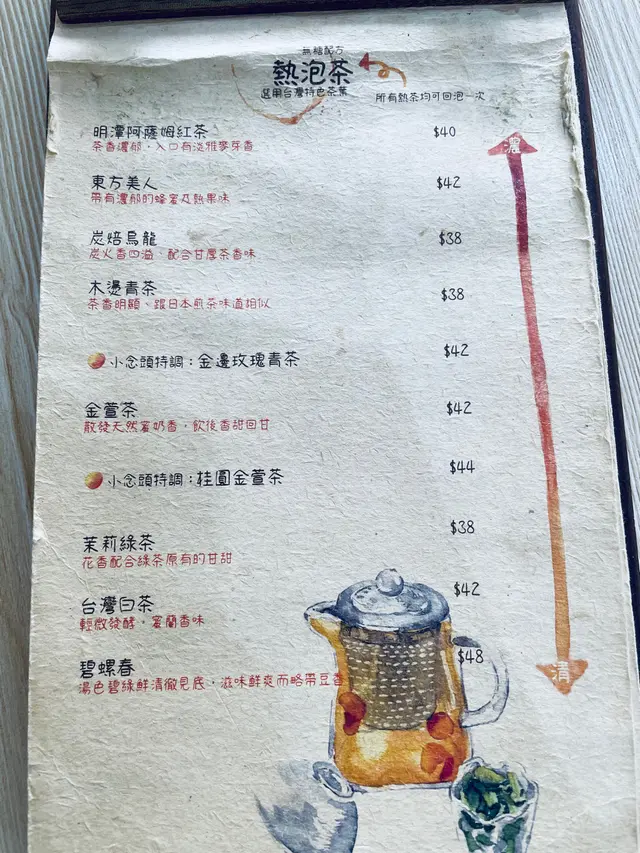 無糖配方
熱泡茶
選用台灣特色茶葉
所有熱茶均可回泡一次
濃
明潭阿薩姆紅茶 $40
茶香濃郁，入口有淡雅麥芽香
東方美人 $42
帶有濃郁的蜂蜜及熟果味
炭焙烏龍 $38
炭火香四溢，配合甘厚茶香味
木燙青茶 $38
茶香明顯、跟日本煎茶味道相似
小念頭特調：金邊玫瑰青茶 $42
金萱茶 $42
散發天然蜜奶香，飲後香甜回甘
小念頭特調：桂圓金萱茶 $44
茉莉綠茶 $38
花香配合綠茶原有的甘甜
台灣白茶 $42
輕微發酵，蜜蘭香味
碧螺春 $48
湯色碧綠鮮清徹見底，滋味鮮爽而略帶豆香
清